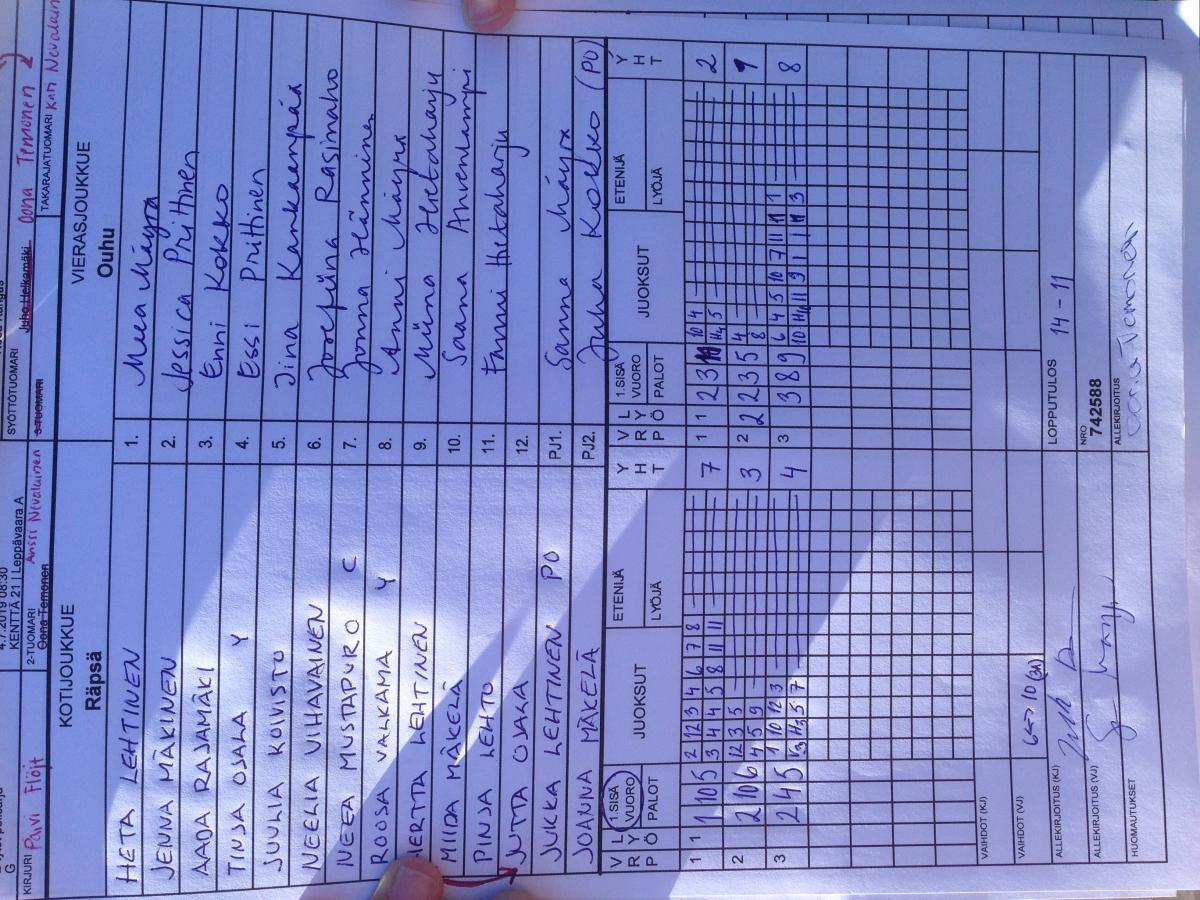 4.7.2019 08:30
KENTTÄ 21 | Leppävaara A
KIRJURI Päivi Flöjt
2-TUOMARI Oona Temonen Anssi Nevalainen
SYÖTTÖTUOMARI Juho Helkamäki Oona Temonen
3-TUOMARI
TAKARAJATUOMARI
KOTIJOUKKUE VIERASJOUKKUE
Räpsä Ouhu
HETA LEHTINEN 1. Meea Mäyrä
JENNA MÄKINEN 2. Jessica Priittinen
AADA RAJAMÄKI 3. Enni Kokko
TINJA OSALA Y 4. Essi Priittinen
JUULIA KOIVISTO 5. Iina Kankaanpää
NEELIA VIHAVAINEN 6. Josefiina Rasimaho
NEEA MUSTAPURO C 7. Jonna Hänninen
ROOSA VALKAMA Y 8. Anni Mäyrä
MERTTA LEHTINEN 9. Miina Hietaharju
MIIDA MÄKELÄ 10. Saana Ahvenlampi
PINJA LEHTO 11. Fanni Hietaharju
JUTTA OJALA 12.
JUKKA LEHTINEN PO PJ1. Sanna Mäyrä
JOANNA MÄKELÄ PJ2. Juha Kokko (PO)
V L 1.SISÄ ETENIJÄ Y V L 1.SISÄ ETENIJÄ Y
R Y VUORO JUOKSUT H R Y VUORO JUOKSUT H
P Ö PALOT LYÖJÄ T P Ö PALOT LYÖJÄ T
1 1 1 10 5 2 12 3 4 6 7 8 7 1 1 2 3 10 4 2
3 4 5 8 11 11
2 2 10 6 12 3 5 3 2 2 2 3 5 4 1
4 5 9 8
3 2 4 5 1 10 12 3 4 3 3 8 9 6 4 5 10 7 11 11 1 8
VAIHDOT (KJ)
VAIHDOT (VJ) 6<->10
LOPPUTULOS 14 - 11
ALLEKIRJOITUS (KJ)
NRO
742588
ALLEKIRJOITUS (VJ)
ALLEKIRJOITUS Oona Temonen
HUOMAUTUKSET